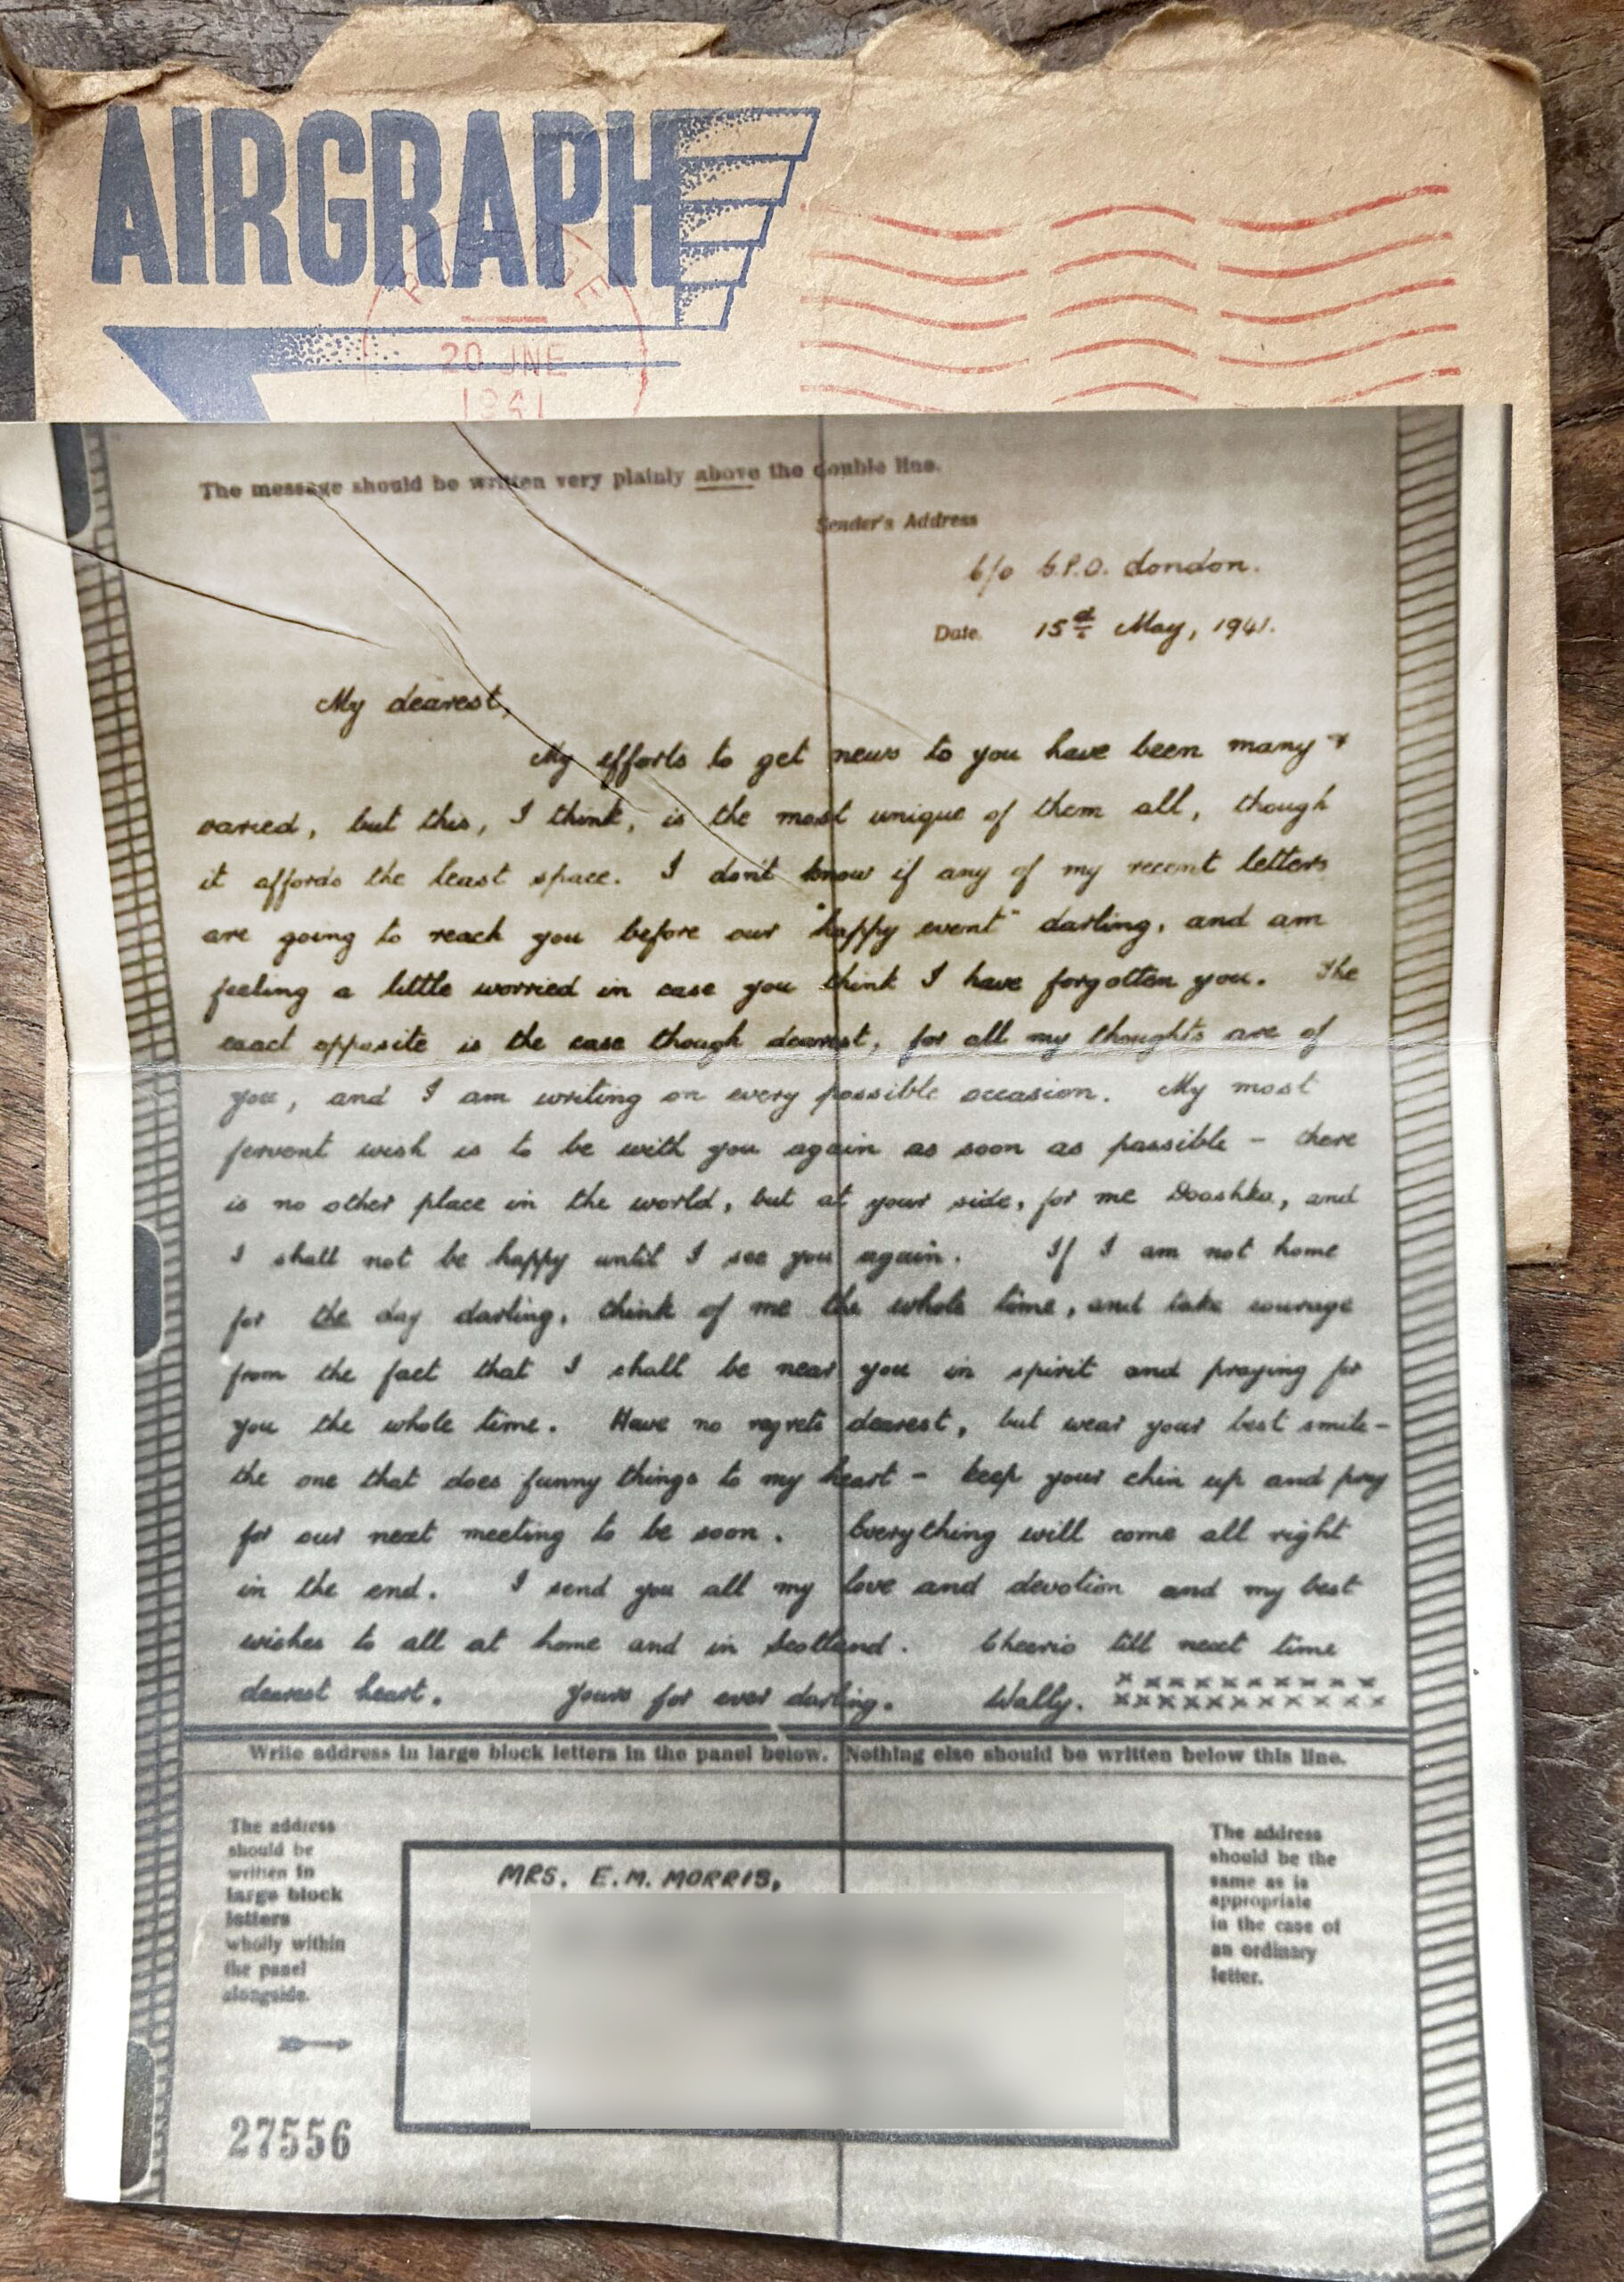 AIRGRAPH
20 JNE
1941
The message should be written very plainly above the double line.
Sender's Address
C/o G.P.O. London.
Date. 15th May, 1941.
My dearest,
My efforts to get news to you have been many +
varied, but this, I think, is the most unique of them all, though
it affords the least space. I don't know if any of my recent letters
are going to reach you before our "happy event" darling, and am
feeling a little worried in case you think I have forgotten you. The
exact opposite is the case though dearest, for all my thoughts are of
you, and I am writing on every possible occasion. My most
fervent wish is to be with you again as soon as possible - there
is no other place in the world, but at your side, for me Dooshka, and
I shall not be happy until I see you again. If I am not home
for the day darling, think of me the whole time, and take courage
from the fact that I shall be near you in spirit and praying for
you the whole time. Have no regrets dearest, but wear your best smile -
the one that does funny things to my heart - keep your chin up and pray
for our next meeting to be soon. Everything will come all right
in the end. I send you all my love and devotion and my best
wishes to all at home and in Scotland. Cheerio till next time
dearest heart. Yours for ever darling. Wally. x x x x x x x x x x
x x x x x x x x x x x x
Write address in large block letters in the panel below. Nothing else should be written below this line.
The address
should be
written in
large block
letters
wholly within
the panel
alongside.
MRS. E.M. MORRIS,
The address
should be the
same as is
appropriate
in the case of
an ordinary
letter.
27556